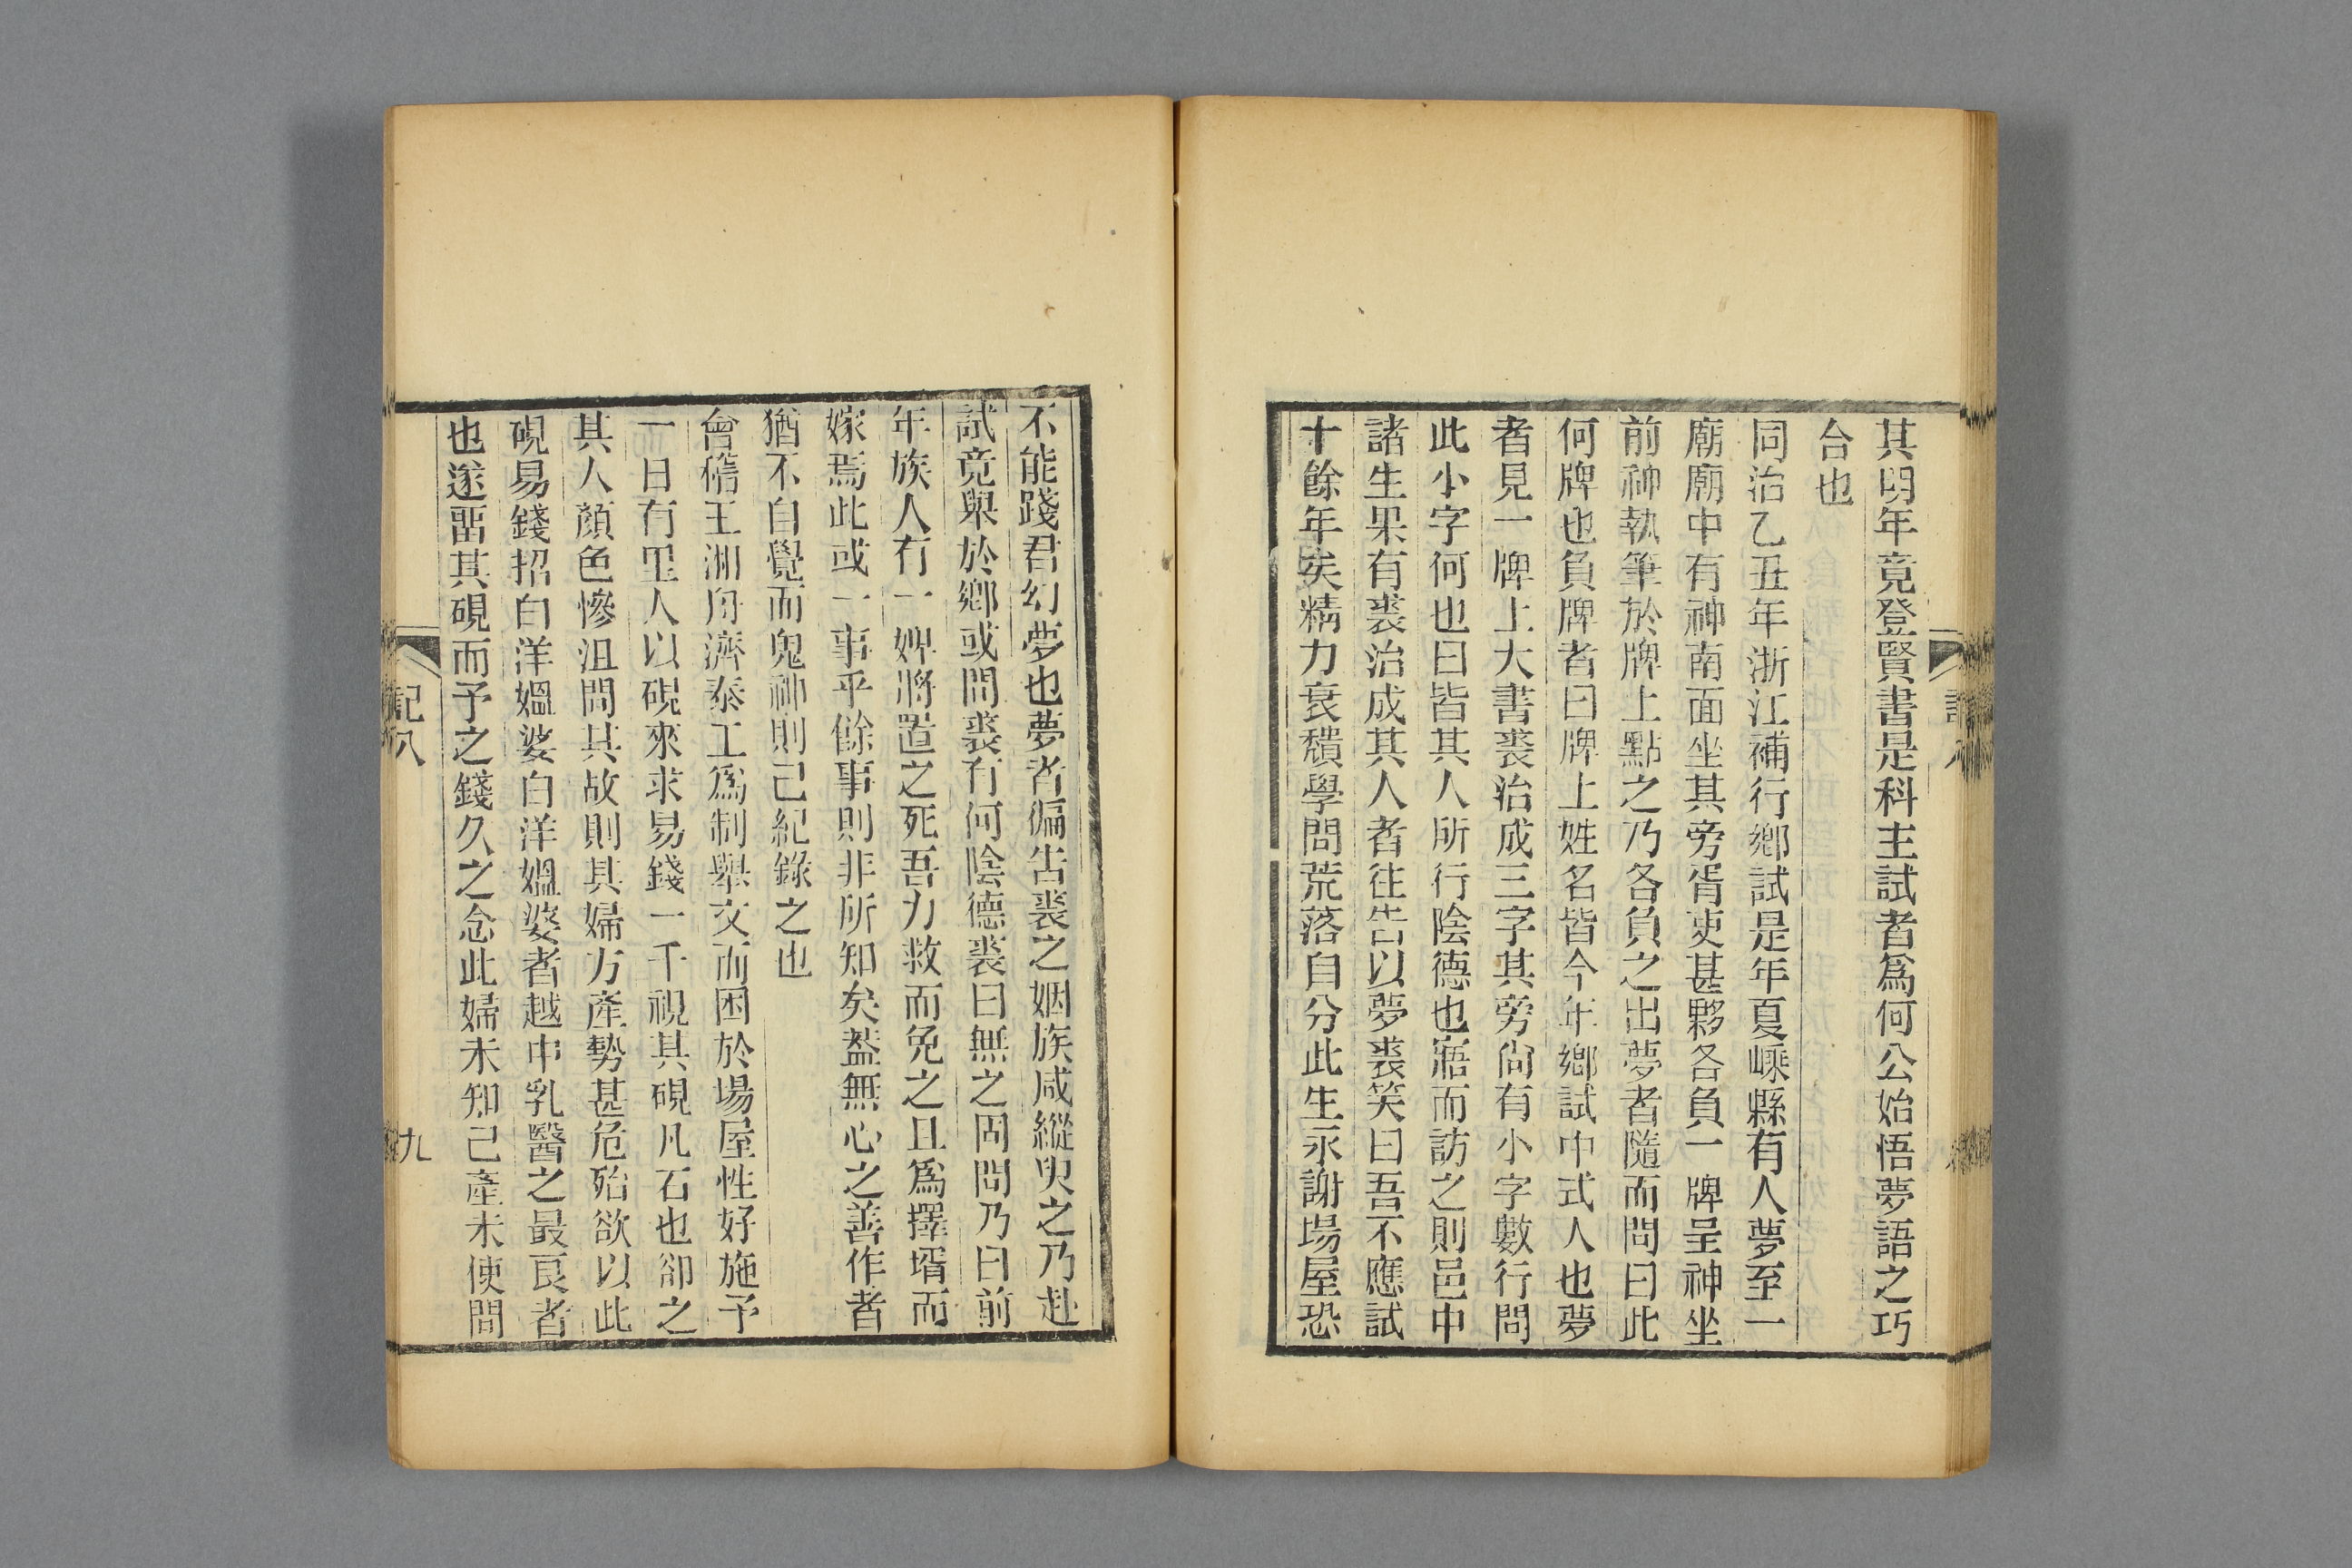 其明年竟登賢書是科主試者爲何公始悟夢語之巧
合也
同治乙丑年浙江補行鄉試是年夏嵊縣有人夢至一
廟廟中有神南面坐其旁胥吏甚夥各負一牌呈神坐
前神執筆於牌上點之乃各負之出夢者隨而問曰此
何牌也負牌者曰牌上姓名皆今年鄉試中式人也夢
者見一牌上大書裘治成三字其旁尙有小字數行問
此小字何也曰皆其人所行陰德也寤而訪之則邑中
諸生果有裘治成其人者往告以夢裘笑曰吾不應試
十餘年矣精力衰穨學問荒落自分此生永謝場屋恐
不能踐君幻夢也夢者徧告裘之姻族咸縱臾之乃赴
試竟舉於鄉或問裘有何陰德裘曰無之固問乃曰前
年族人有一婢將置之死吾力救而免之且爲擇壻而
嫁焉此或一事乎餘事則非所知矣葢無心之善作者
猶不自覺而鬼神則已紀錄之也
會稽王湘舟濟泰工爲制舉文而困於場屋性好施予
一日有里人以硯來求易錢一千視其硯凡石也卻之
其人顏色慘沮問其故則其婦方產勢甚危殆欲以此
硯易錢招白洋媼婆白洋媼婆者越中乳醫之最良者
也遂畱其硯而予之錢久之念此婦未知已產未使問
記八
九